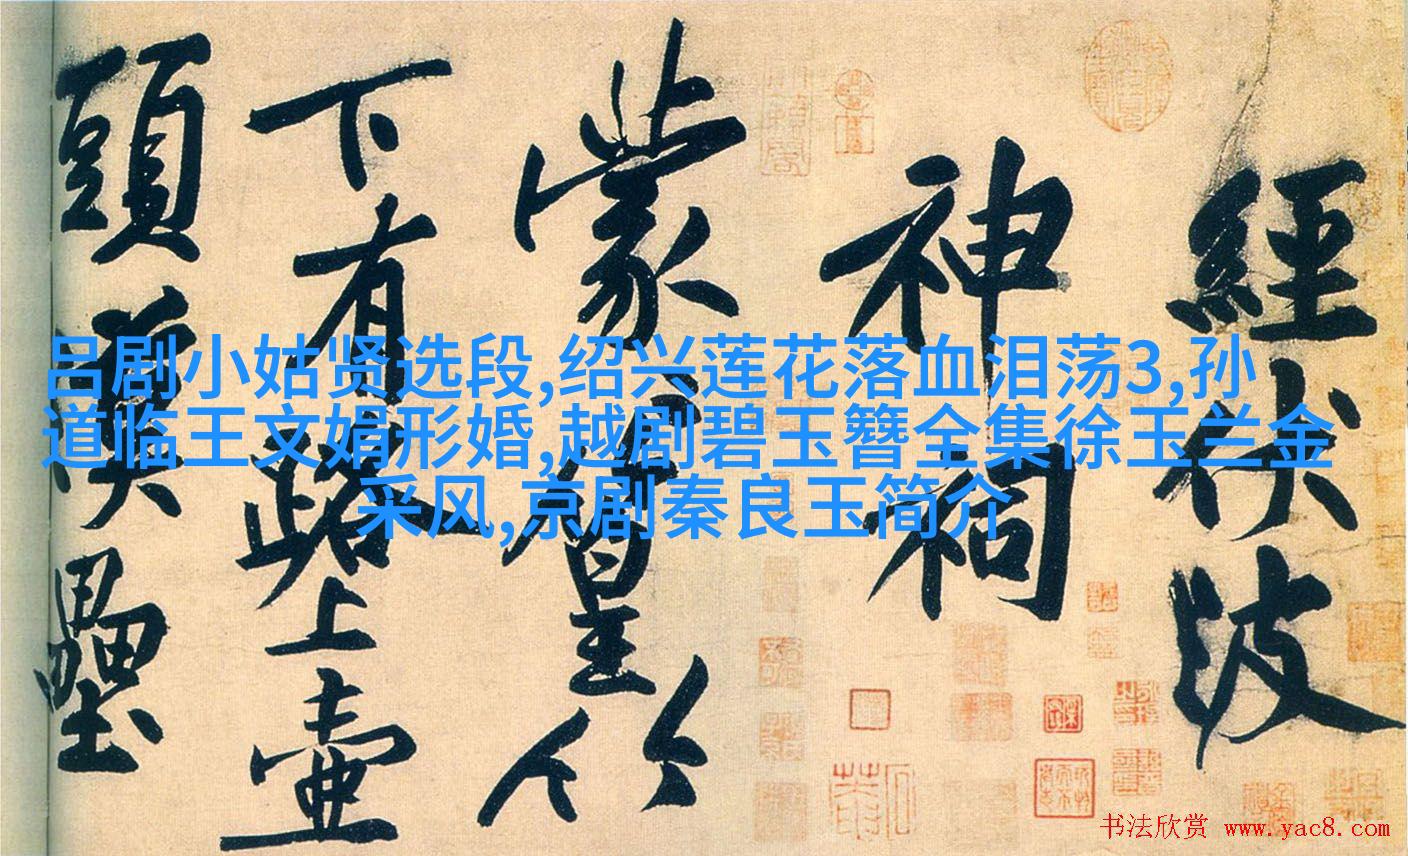 經伏波
神祠
蒙篁竹
下有路上壺
頭漢壘
吕剧小姑贤选段,绍兴莲花落血泪荡3,孙
道临王文娟形婚,越剧碧玉簪全集徐玉兰金
采风,京剧秦良玉简介
书法欣赏 www.yac8.com